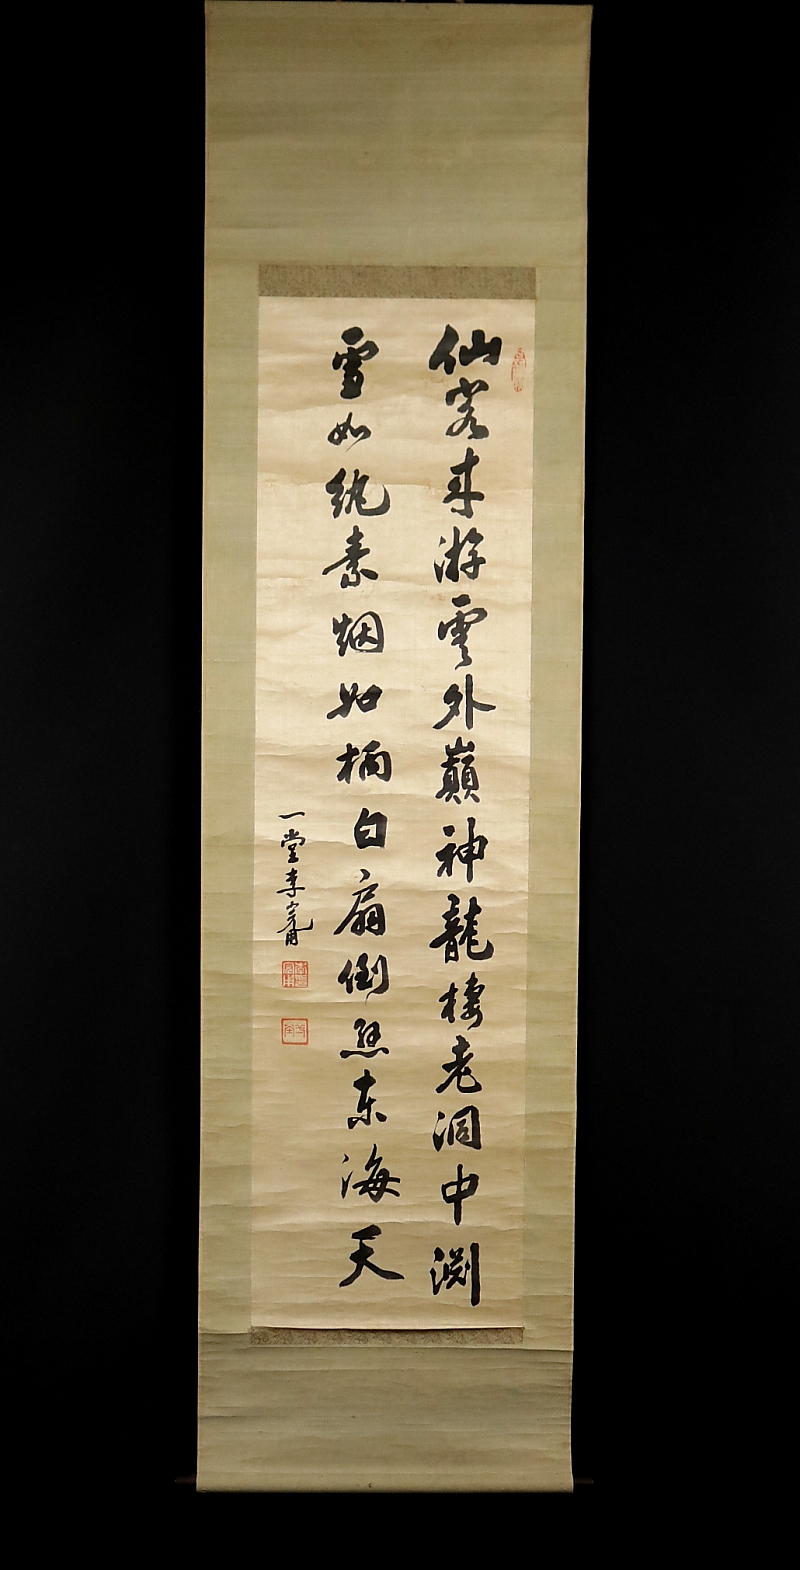 仙客来游雲外巓神龍棲老洞中渊
雪如紈素烟如柄白扇倒懸東海天
一堂李完用